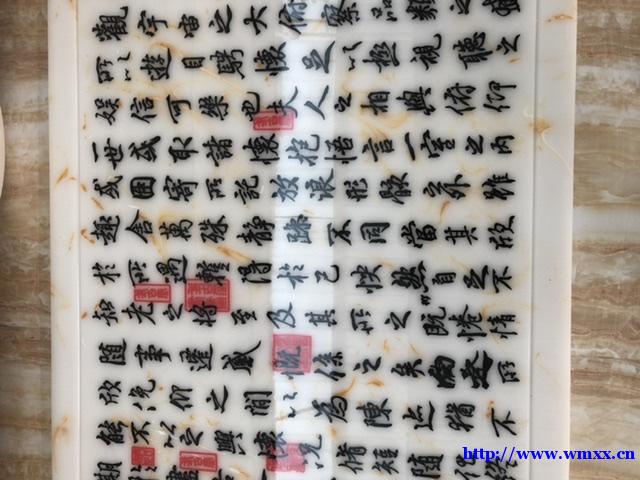 觀宇宙之大俯察品類之盛
所以遊目騁懷足以極視聽之
娛信可樂也夫人之相與俯仰
一世或取諸懷抱悟言一室之內
或因寄所託放浪形骸之外雖
趣舍萬殊靜躁不同當其欣
於所遇輒得於己快然自足不
知老之將至及其所之既惓情
隨事遷感慨係之矣向之所
欣俛仰之閒以為陳迹猶不
能不以之興懷況脩短隨化終
期於盡
http://www.wmxx.cn